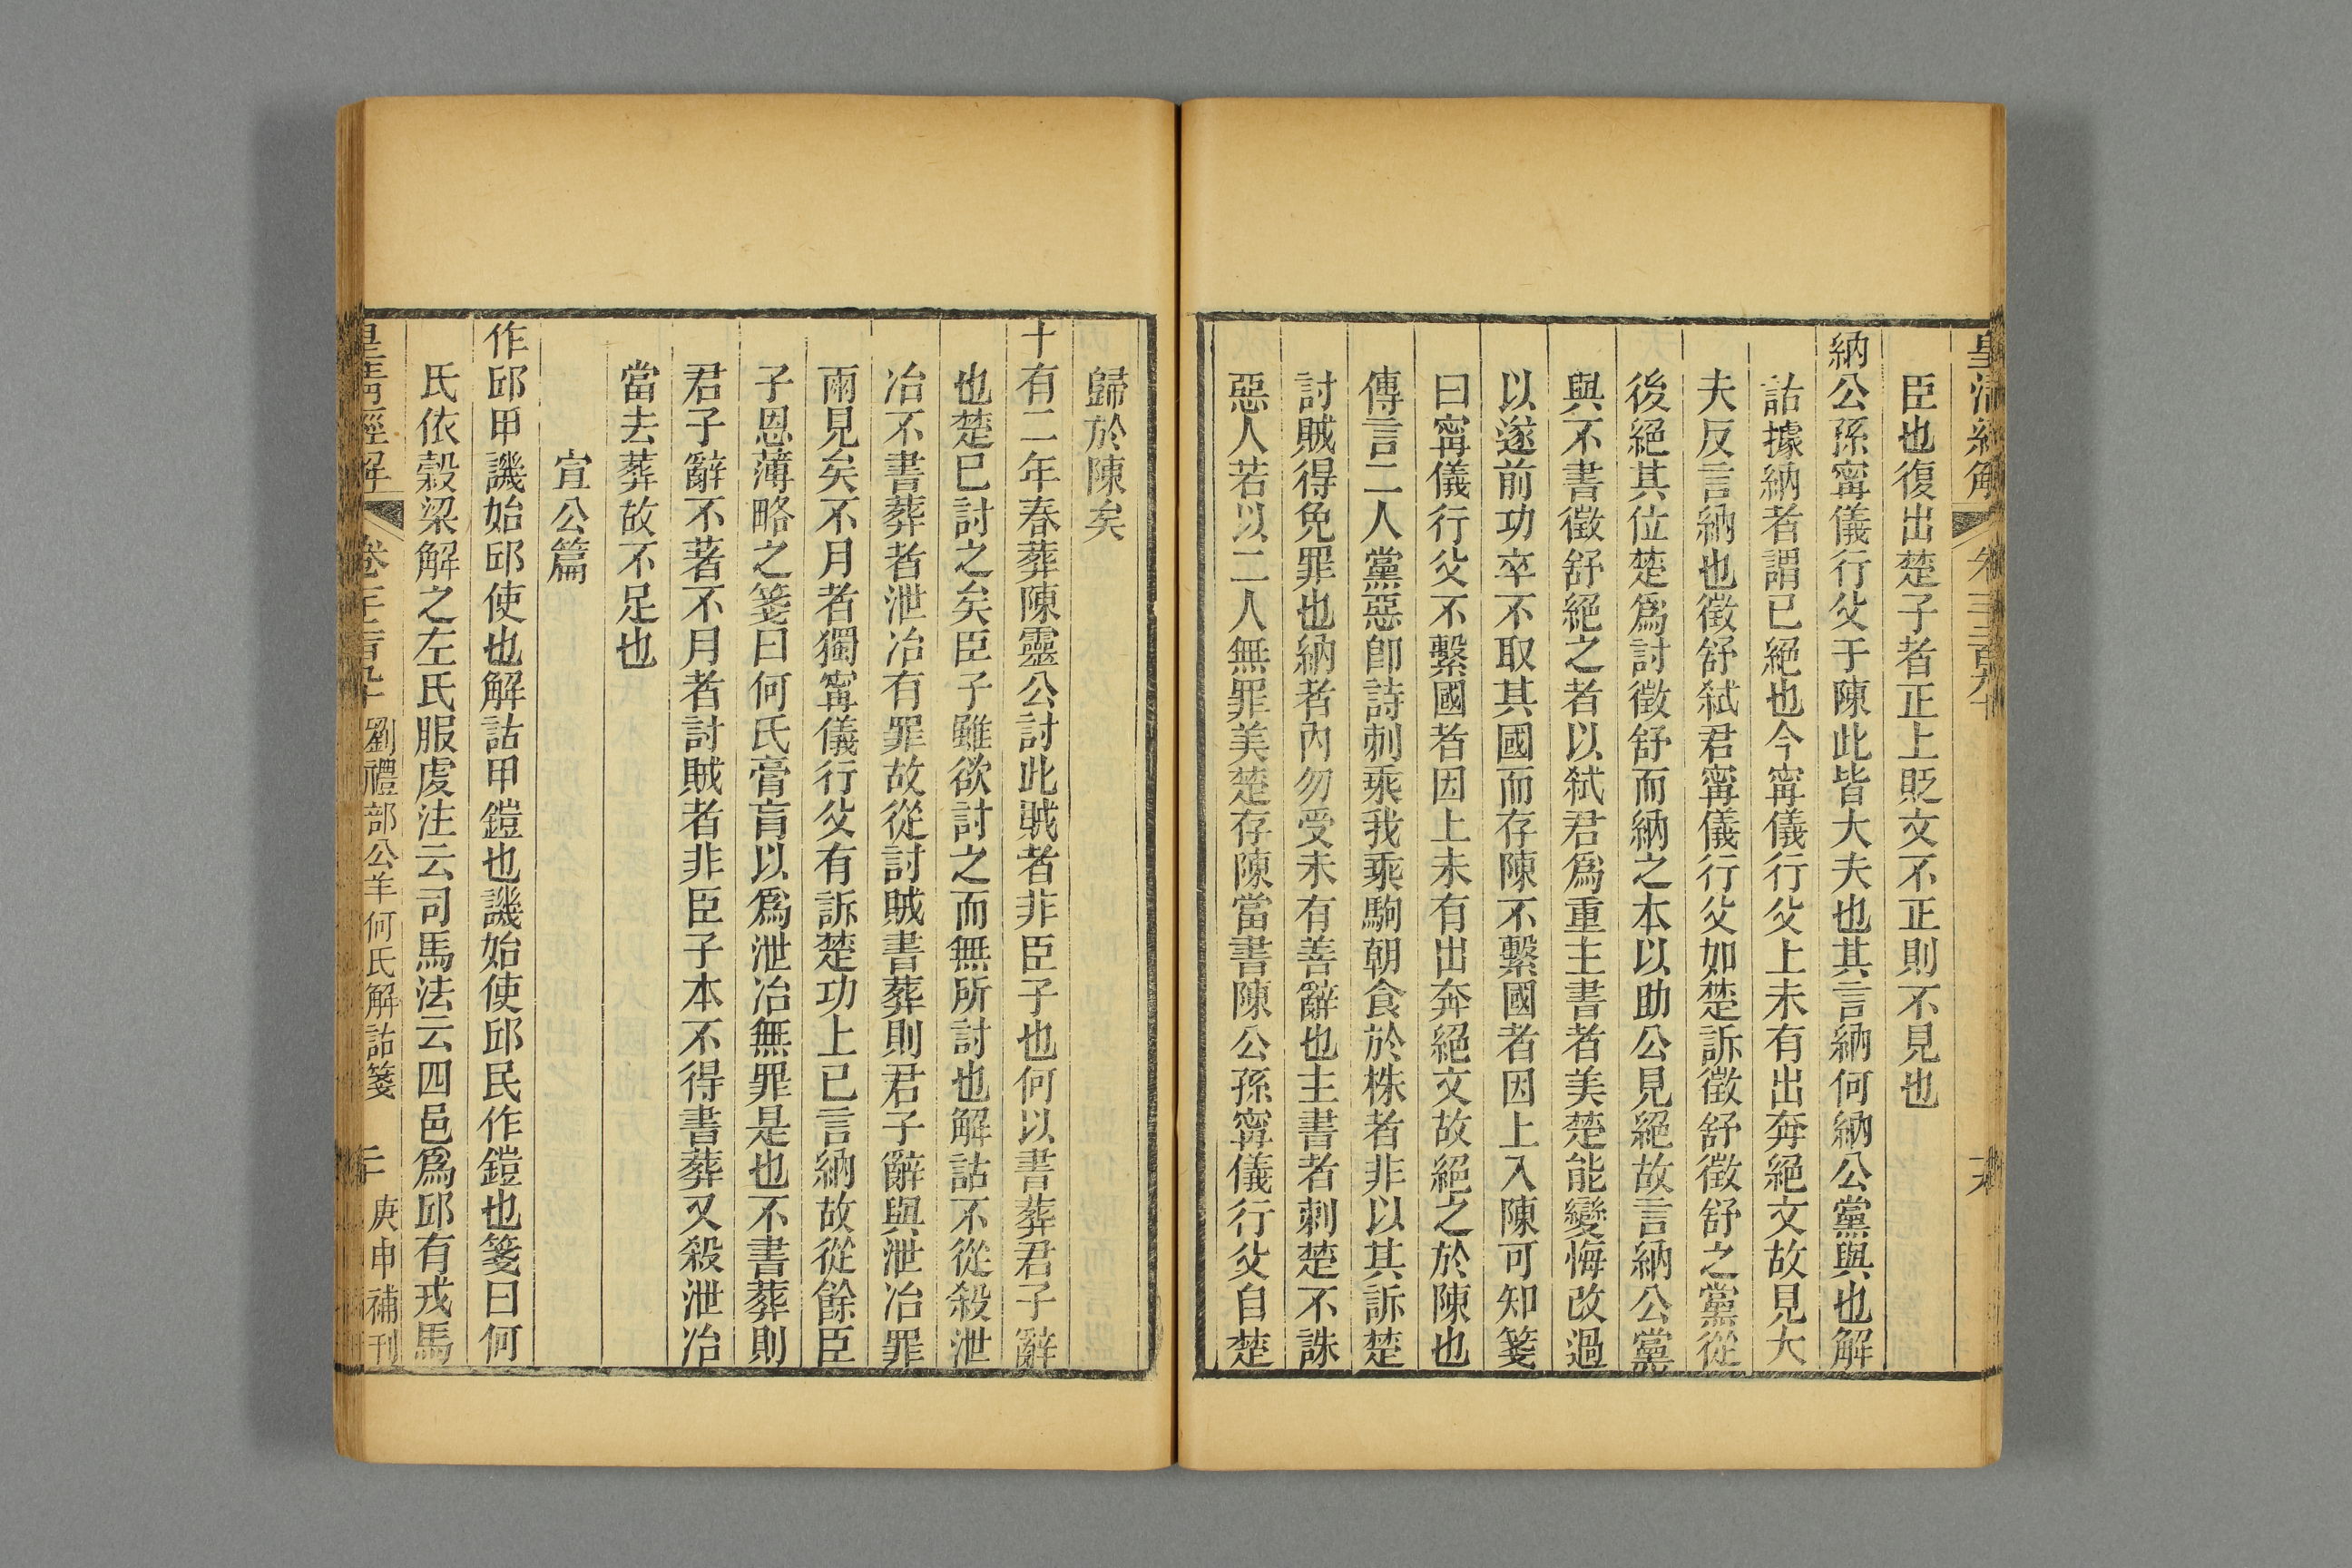 臣也復出楚子者正上貶文不正則不見也
納公孫甯儀行父于陳此皆大夫也其言納何納公黨與也解
詁據納者謂已絕也今甯儀行父上未有出奔絕文故見大
夫反言納也徵舒弑君甯儀行父如楚訴徵舒徵舒之黨從
後絕其位楚爲討徵舒而納之本以助公見絕故言納公黨
與不書徵舒絕之者以弑君爲重主書者美楚能變悔改過
以遂前功卒不取其國而存陳不繫國者因上入陳可知箋
曰甯儀行父不繫國者因上未有出奔絕文故絕之於陳也
傳言二人黨惡卽詩刺乘我乘駒朝食於株者非以其訴楚
討賊得免罪也納者內勿受未有善辭也主書者刺楚不誅
惡人若以二人無罪美楚存陳當書陳公孫甯儀行父自楚
歸於陳矣
十有二年春葬陳靈公討此賊者非臣子也何以書葬君子辭
也楚已討之矣臣子雖欲討之而無所討也解詁不從殺泄
冶不書葬者泄冶有罪故從討賊書葬則君子辭與泄冶罪
兩見矣不月者獨甯儀行父有訴楚功上已言納故從餘臣
子恩薄略之箋曰何氏膏肓以爲泄冶無罪是也不書葬則
君子辭不著不月者討賊者非臣子本不得書葬又殺泄冶
當去葬故不足也
宣公篇
作邱甲譏始邱使也解詁甲鎧也譏始使邱民作鎧也箋曰何
氏依穀梁解之左氏服虔注云司馬法云四邑爲邱有戎馬
皇清經解 卷千二百九十 劉禮部公羊何氏解詁箋 庚申補刊